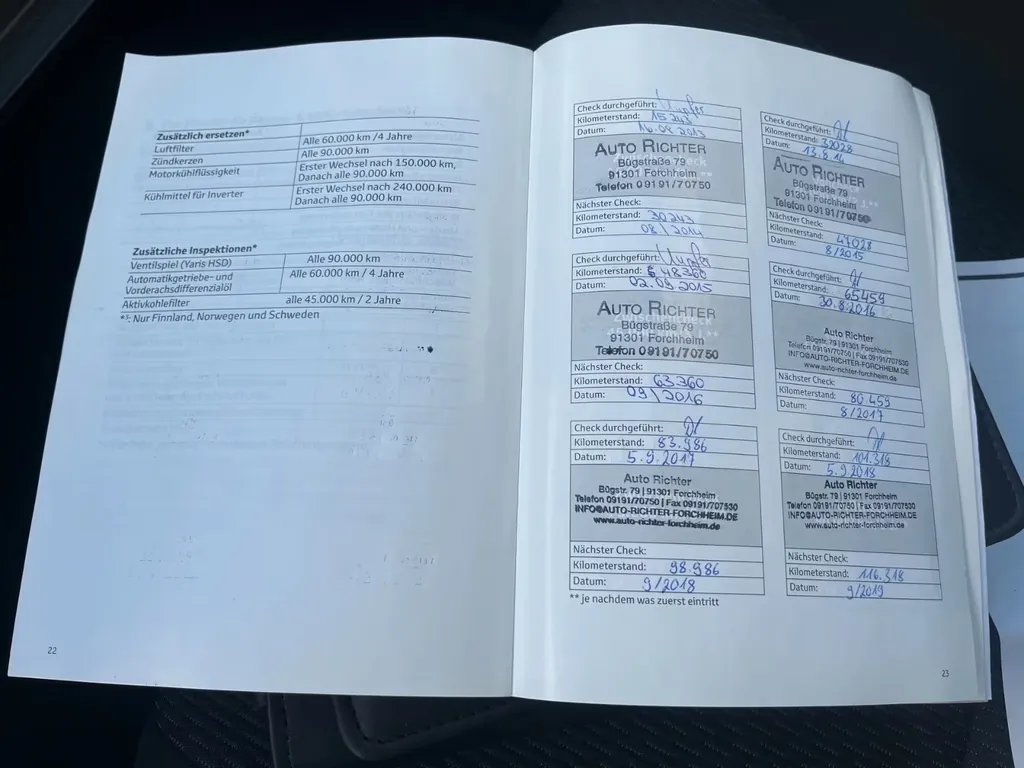 Zusätzlich ersetzen*
Luftfilter Alle 60.000 km /4 Jahre
Zündkerzen Alle 90.000 km
Motorkühlflüssigkeit Erster Wechsel nach 150.000 km,
Danach alle 90.000 km
Kühlmittel für Inverter Erster Wechsel nach 240.000 km
Danach alle 90.000 km
Zusätzliche Inspektionen*
Ventilspiel (Yaris HSD) Alle 90.000 km
Automatikgetriebe- und Alle 60.000 km / 4 Jahre
Vorderachsdifferenzialöl
Aktivkohlefilter alle 45.000 km / 2 Jahre
*³: Nur Finnland, Norwegen und Schweden
22
Check durchgeführt:
Kilometerstand: 15 243
Datum: 16.09.2013
AUTO RICHTER
Bügstraße 79
91301 Forchheim
Telefon 09191/70750
Nächster Check:
Kilometerstand: 30 243
Datum: 08/2014
Check durchgeführt:
Kilometerstand: 32028
Datum: 13.8.14
AUTO RICHTER
Bügstraße 79
91301 Forchheim
Telefon 09191/70750
Nächster Check:
Kilometerstand: 47028
Datum: 8/2015
Check durchgeführt:
Kilometerstand: 48360
Datum: 02.09.2015
AUTO RICHTER
Bügstraße 79
91301 Forchheim
Telefon 09191/70750
Nächster Check:
Kilometerstand: 63360
Datum: 09/2016
Check durchgeführt:
Kilometerstand: 65459
Datum: 30.8.2016
Auto Richter
Bügstr. 79 | 91301 Forchheim
Telefon 09191/70750 | Fax 09191/707530
INFO@AUTO-RICHTER-FORCHHEIM.DE
www.auto-richter-forchheim.de
Nächster Check:
Kilometerstand: 80 459
Datum: 8/2017
Check durchgeführt:
Kilometerstand: 83.986
Datum: 5.9.2017
Auto Richter
Bügstr. 79 | 91301 Forchheim
Telefon 09191/70750 | Fax 09191/707530
INFO@AUTO-RICHTER-FORCHHEIM.DE
www.auto-richter-forchheim.de
Nächster Check:
Kilometerstand: 98.986
Datum: 9/2018
Check durchgeführt:
Kilometerstand: 101.318
Datum: 5.9.2018
Auto Richter
Bügstr. 79 | 91301 Forchheim
Telefon 09191/70750 | Fax 09191/707530
INFO@AUTO-RICHTER-FORCHHEIM.DE
www.auto-richter-forchheim.de
Nächster Check:
Kilometerstand: 116.318
Datum: 9/2019
** je nachdem was zuerst eintritt
23